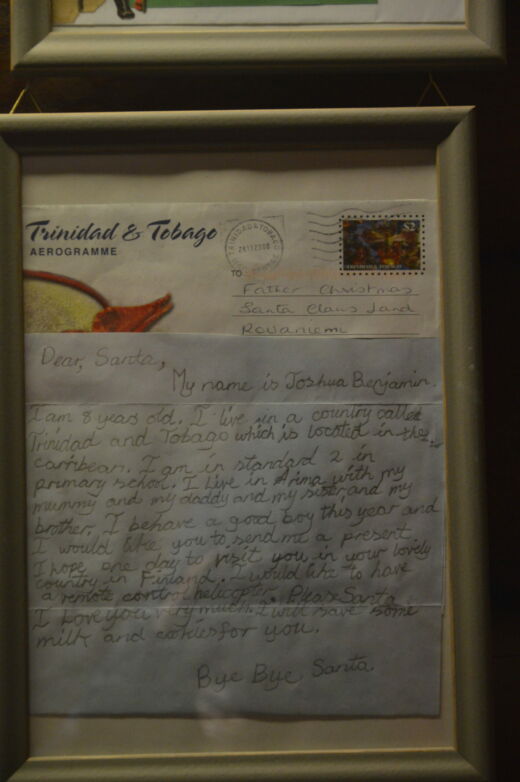 Trinidad & Tobago
AEROGRAMME
TRINIDAD & TOBAGO
$2
TO
Father Christmas
Santa Claus Land
Rovaniemi
Dear, Santa,
My name is Joshua Benjamin.
I am 8 years old. I live in a country called
Trinidad and Tobago which is located in the
carribean. I am in standard 2 in
primary school. I live in Arima with my
mummy and my daddy and my sister, and my
brother. I behave a good boy this year and
I would like you to send me a present.
I hope one day to visit you in your lovely
country in Finland. I would like to have
a remote control helicopter. Please Santa
I Love you very much. I will save some
milk and cookies for you.
Bye Bye Santa.